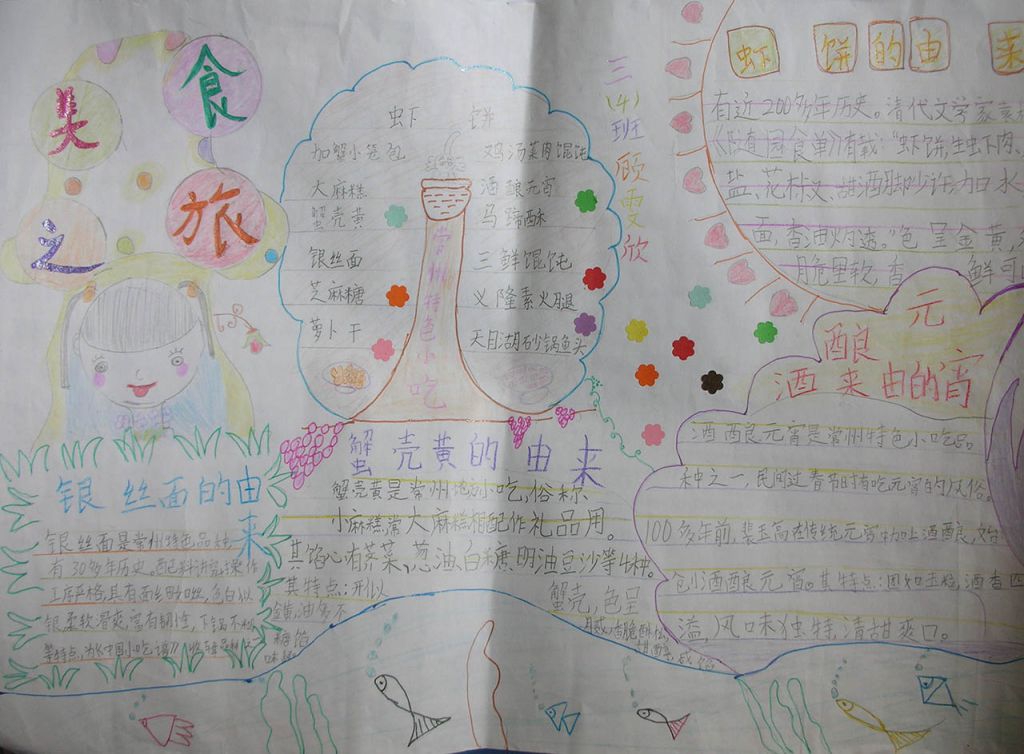 美食
之旅
三(4)班 顾雯欣
虾饼
加蟹小笼包
大麻糕
蟹壳黄
银丝面
芝麻糖
萝卜干
鸡汤菜肉馄饨
酒酿元宵
马蹄酥
三鲜馄饨
义隆素火腿
天目湖砂锅鱼头
常州特色小吃
虾饼的由来
有近200多年历史。清代文学家袁
《随园食单》有载:“虾饼,生虾肉、
盐、花椒、甜酒脚少许,加水
面,香油灼透。”色呈金黄,
脆里软,香 鲜可
银丝面的由来
银丝面是常州特色品
有30多年历史。配料讲究,操作
工序严格,具有面丝 ,色白似
银,柔软滑爽,富有韧性,下锅不
等特点,为《中国小吃谱》
蟹壳黄的由来
蟹壳黄是常州地方小吃,俗称
小麻糕,常大麻糕相配作礼品用。
其馅心有荠菜、葱油、白糖、明油豆沙等4种。
其特点:开似
蟹壳,色呈
金黄,油多不
酒酿元宵的由来
酒酿元宵是常州特色小吃品
种之一,民间过春节时有吃元宵的风俗。
100多年前,裴玉高在传统元宵中加上酒酿,始
创酒酿元宵。其特点:圆如玉珠,酒香四
溢,风味独特,清甜爽口。